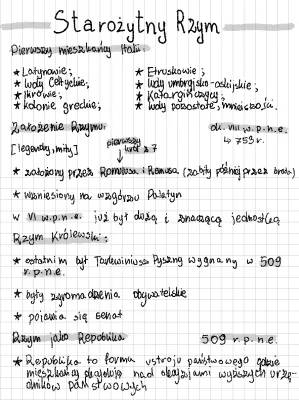 Starożytny Rzym
Pierwszy mieszkańcy Italii:
★ Latynowie; ★ Etruskowie;
★ ludy Celtyckie; ★ ludy umbryjsko-oskijskie;
★ Ilirowie; ★ Kartagińczycy;
★ kolonie greckie; ★ ludy pozostałe; mniejszości.
Założenie Rzymu: ok. VIII w. p.n.e.
↳ 753 r.
[legendy, mity] pierwszy król z 7
★ założony przez Romulusa i Remusa (zabity później przez brata)
★ wzniesiony na wzgórzu Palatyn
w VI w.p.n.e. już był dużą i znaczącą jednostką
Rzym Królewski:
★ ostatnim był Tarkwiniusz Pyszny wygnany w 509
r.p.n.e.
★ były zgromadzenia obywatelskie
★ pojawia się senat
Rzym jako Republika 509 r. p.n.e.
★ Republika to forma ustroju państwowego gdzie
mieszkańcy nad wyższych urzę-
dników państwowych